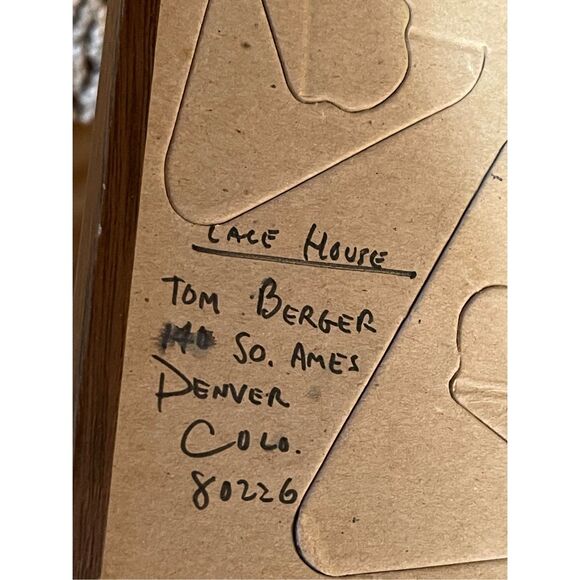 LACE HOUSE
TOM BERGER
SO. AMES
DENVER
COLO.
80226